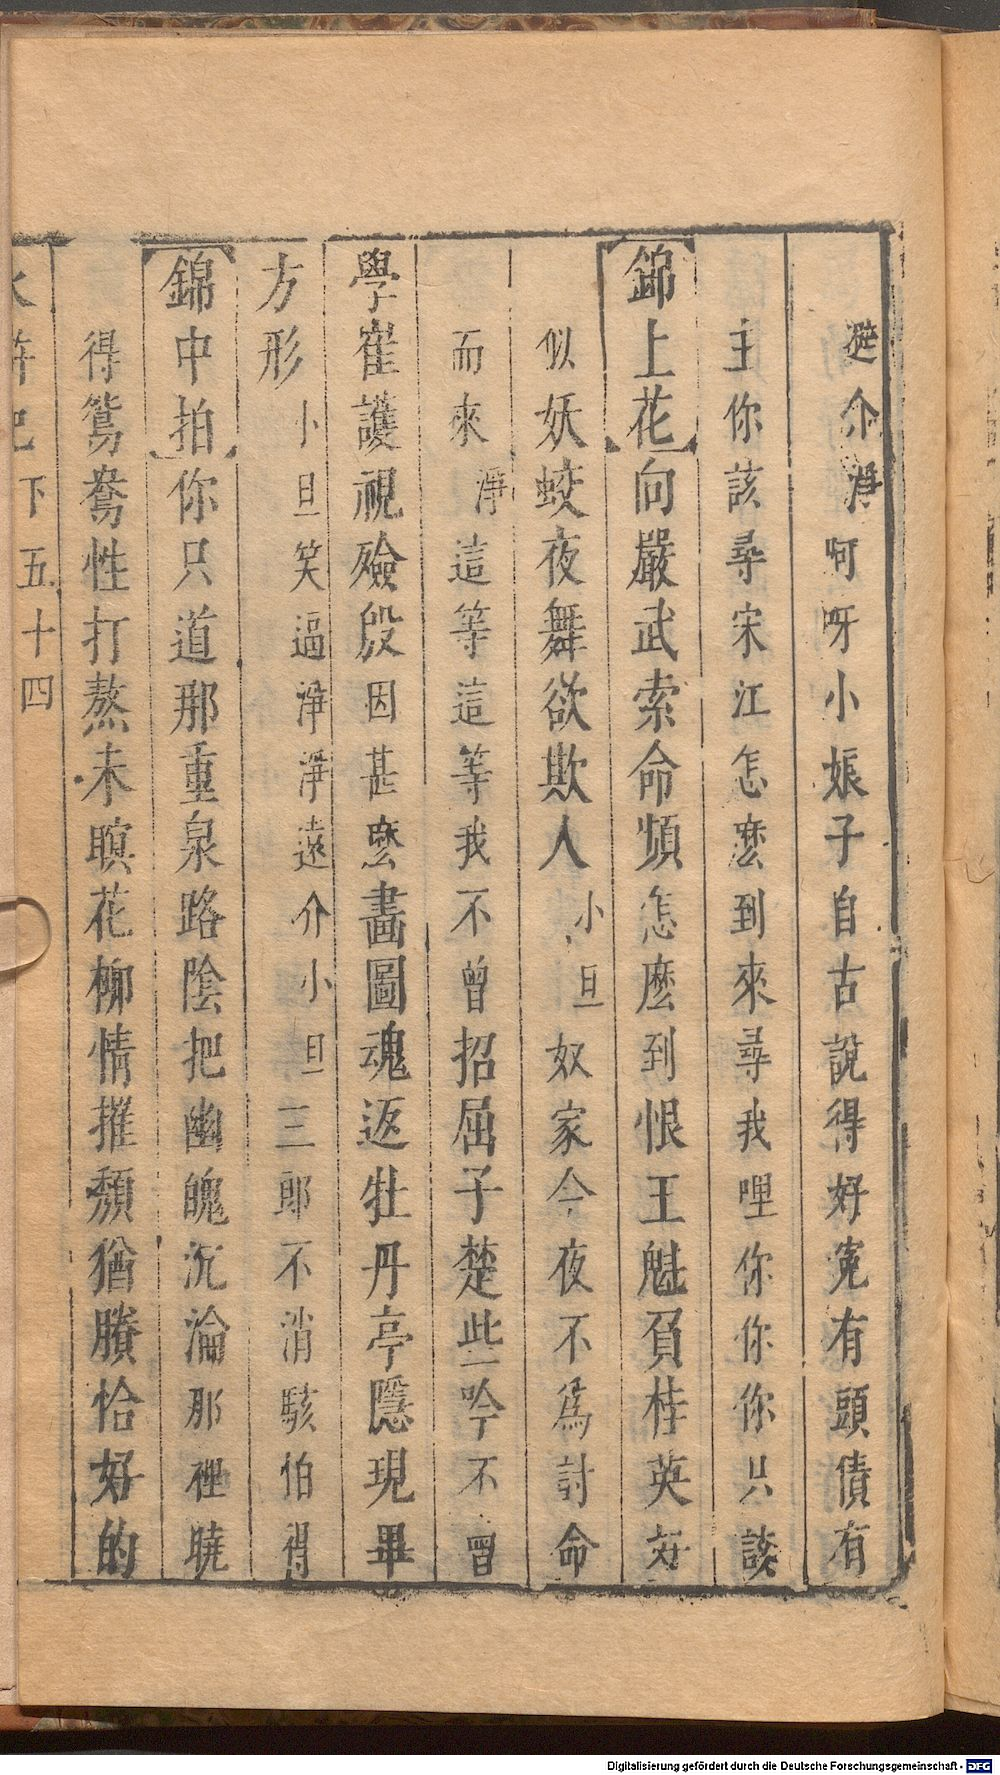 從介淨呵呀小娘子自古說得好寃有頭債有
主你該尋宋江怎麽到來尋我哩你你你只該
錦上花向嚴武索命頻怎麽到恨王魁負桂英好
似妖蛟夜舞欲欺人小旦奴家今夜不爲討命
而來淨這等這等我不曾招屈子楚些吟不曾
學崔護視殮殷因甚麽畫圖魂返牡丹亭隱現畢
方形小旦笑逼淨淨遠介小旦三郎不消駭怕得
錦中拍你只道那重泉路陰把幽魄沉淪那裡曉
得鴛鴦性打熬未暝花柳情摧頽猶賸恰好的
水滸記下五十四
Digitalisierung gefördert durch die Deutsche Forschungsgemeinschaft - DFG